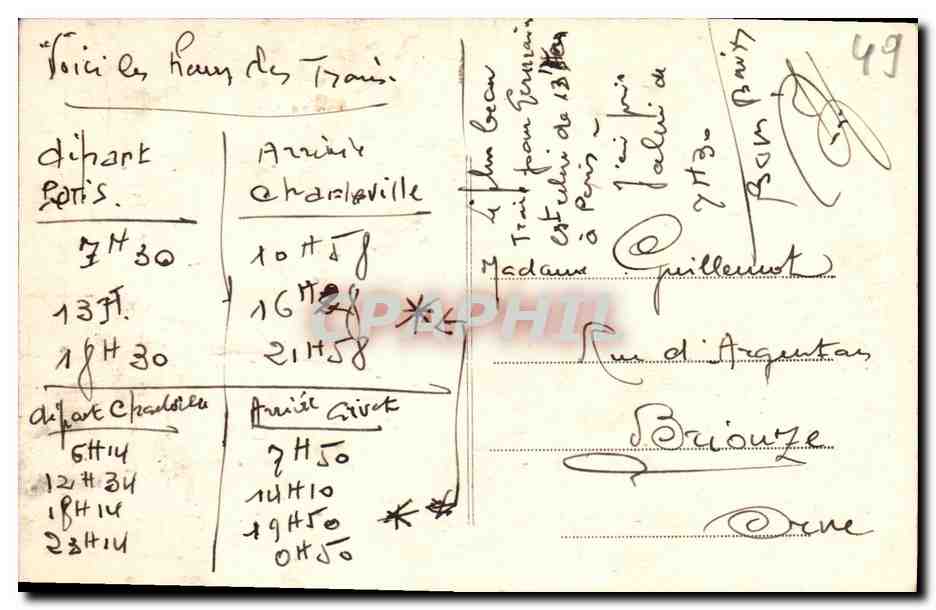 Voici les heures des Trains.
départ
Paris.
Arrivée
Charleville
7H30
10H58
13H.
16H
18H30
21H58
départ Charleville
Arrivée Givet
6H14
7H50
12H34
14H10
18H14
19H50
23H14
0H50
Le plus beau
Train pour Germain
est celui de 13H
à Paris
J'ai pris
celui de
7H30
Bons Baisers
49
Madame Guillemot
Rue d'Argentan
Briouze
Orne
CPAPHIL